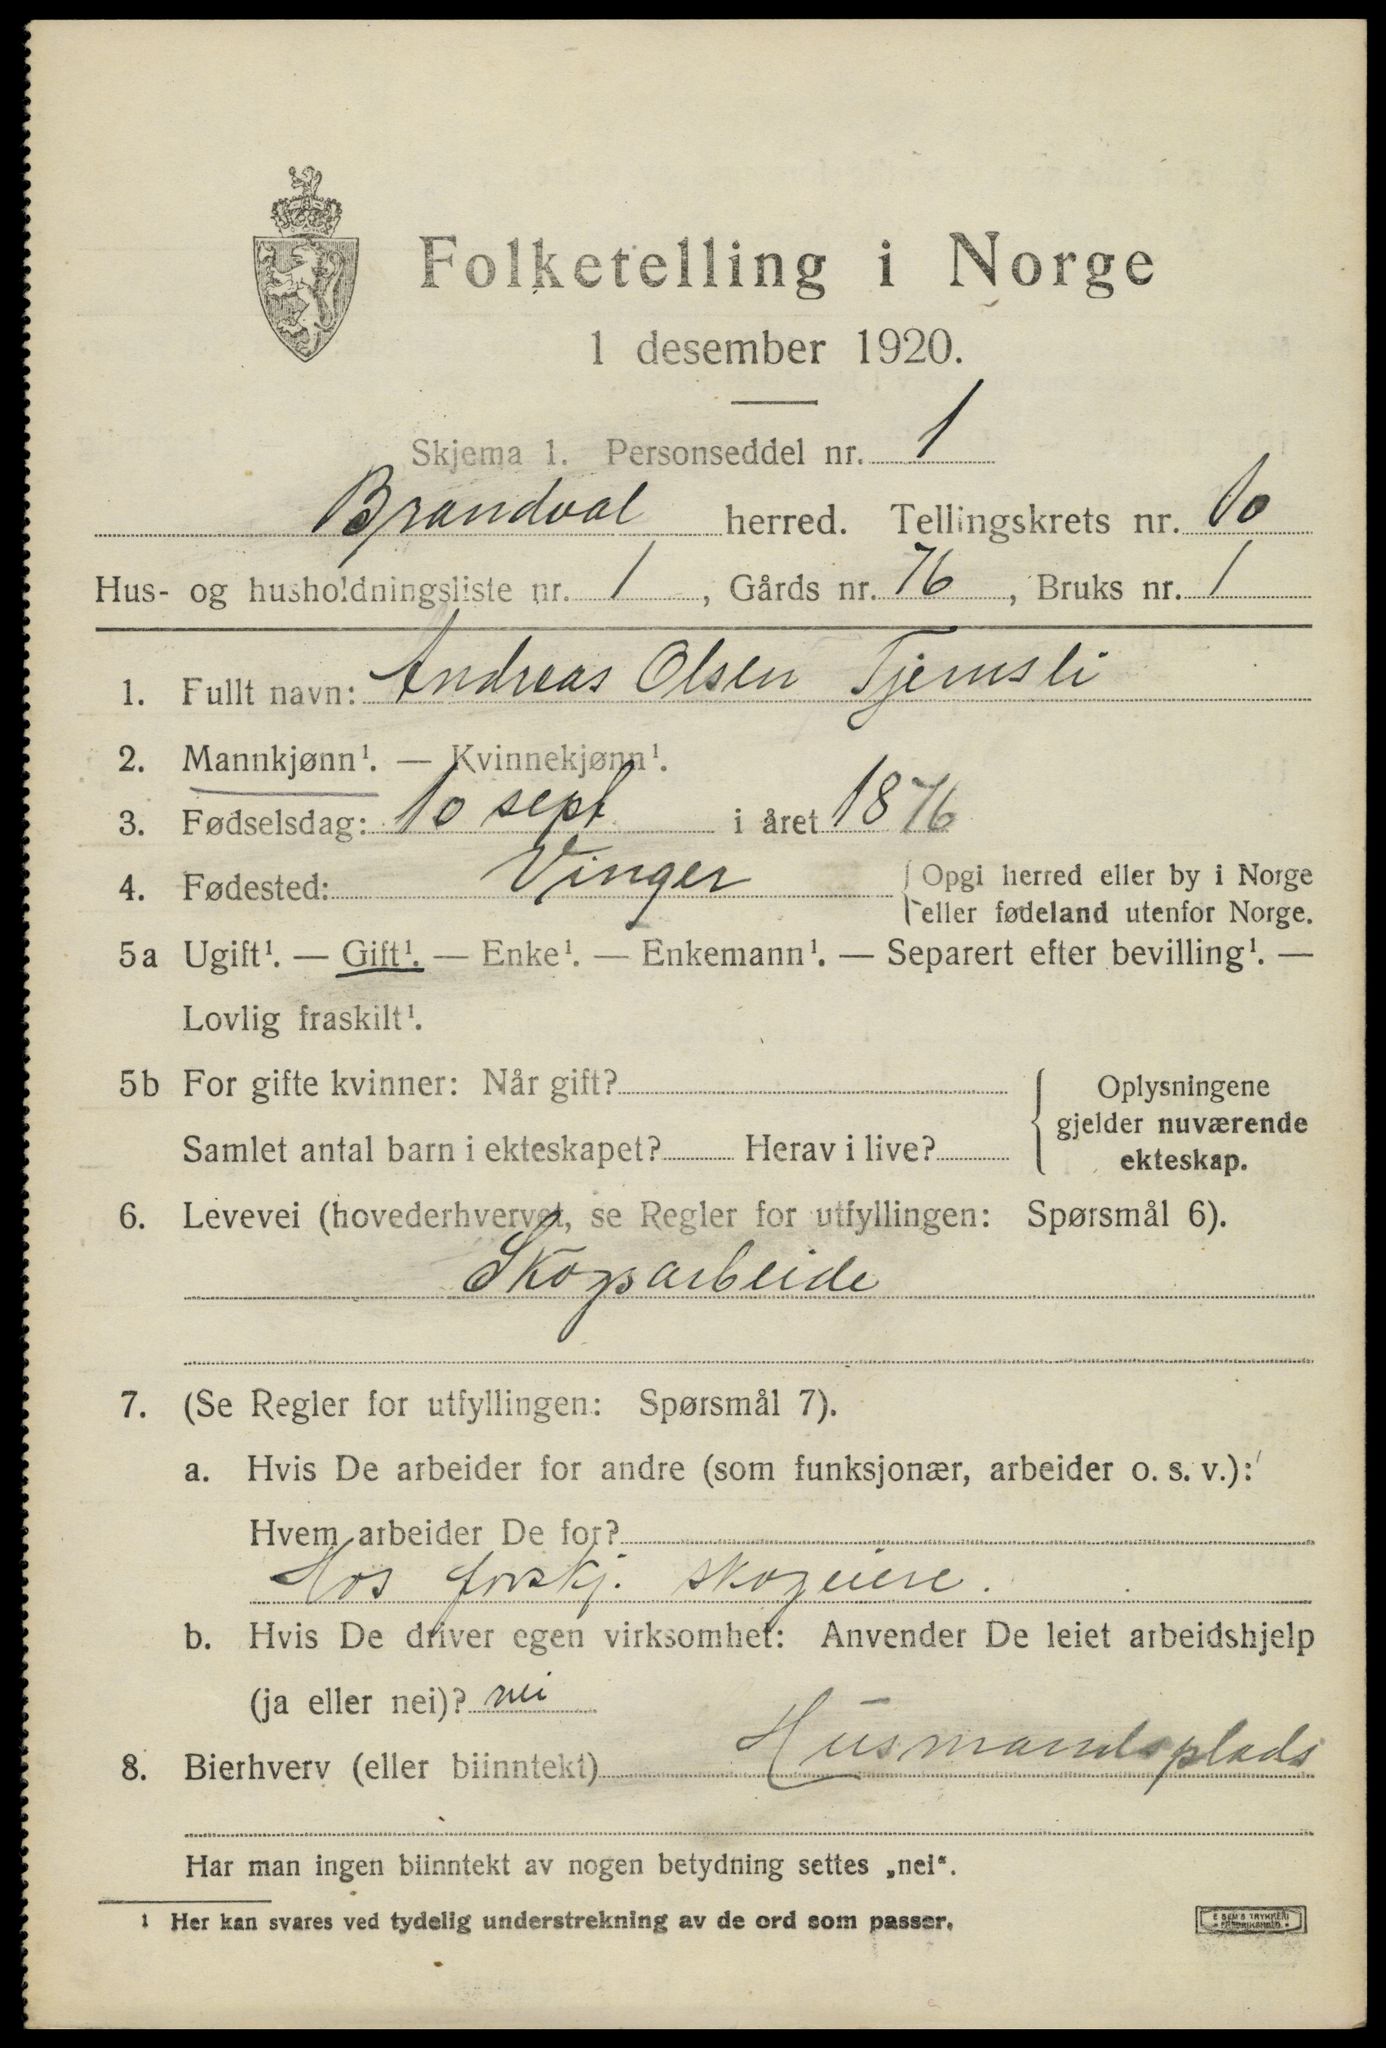 Folketelling i Norge
1 desember 1920.
Skjema 1. Personseddel nr. 1
Brandval herred. Tellingskrets nr. 10
Hus- og husholdningsliste nr. 1, Gårds nr. 76, Bruks nr. 1
1. Fullt navn: Andreas Olsen Tjernsli
2. Mannkjønn¹. — Kvinnekjønn¹.
3. Fødselsdag: 10 sept i året 1876
4. Fødested: Vinger { Opgi herred eller by i Norge
eller fødeland utenfor Norge.
5a Ugift¹. — Gift¹. — Enke¹. — Enkemann¹. — Separert efter bevilling¹. —
Lovlig fraskilt¹.
5b For gifte kvinner: Når gift? { Oplysningene
gjelder nuværende
Samlet antal barn i ekteskapet? Herav i live? ekteskap.
6. Levevei (hovederhvervet, se Regler for utfyllingen: Spørsmål 6).
Skogsarbeide
7. (Se Regler for utfyllingen: Spørsmål 7).
a. Hvis De arbeider for andre (som funksjonær, arbeider o. s. v.):
Hvem arbeider De for?
Hos forskj. skogeiere.
b. Hvis De driver egen virksomhet: Anvender De leiet arbeidshjelp
(ja eller nei)? nei
8. Bierhverv (eller biinntekt) Husmandsplads
Har man ingen biinntekt av nogen betydning settes „nei“.
1 Her kan svares ved tydelig understrekning av de ord som passer.
E SEM'S TRYKKERI
FREDRIKSHALD